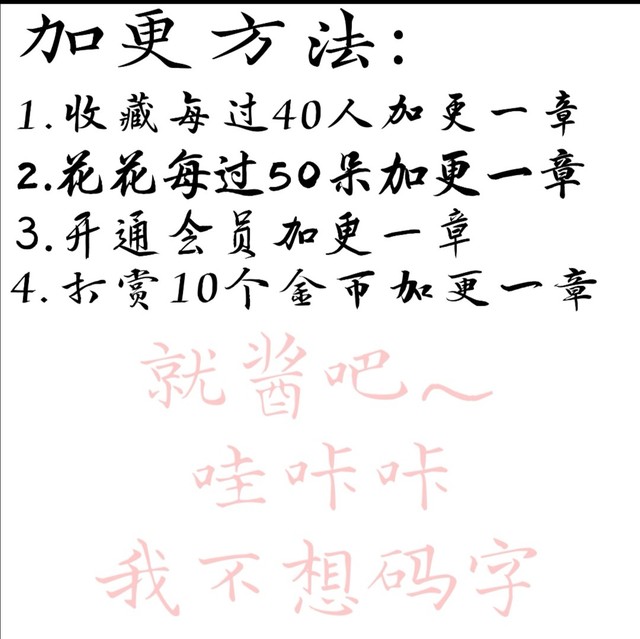 加更方法:
1.收藏每过40人加更一章
2.花花每过50朵加更一章
3.开通会员加更一章
4.打赏10个金币加更一章
就酱吧~
哇咔咔
我不想码字